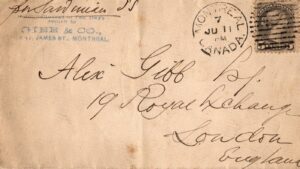 per Sardinian SS
& CO.,
ST. JAMES ST., MONTREAL.
MONTREAL
7
JU 11
PM
CANADA
Alex Gibb
19 Royal Exchange
London
England